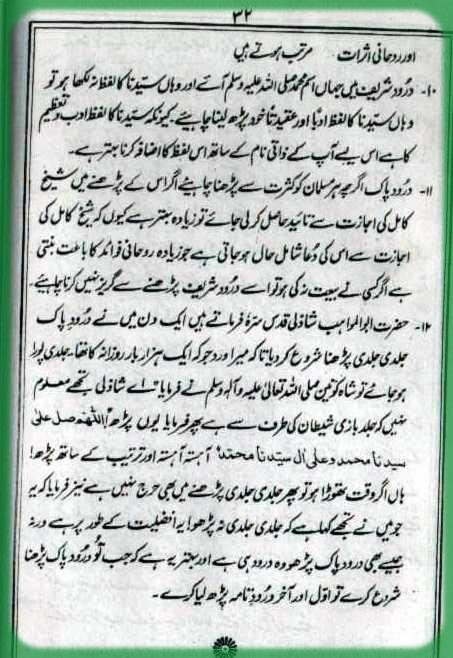 ۳۲
اور روحانی اثرات مرتب ہوتے ہیں
۱۰۔ درود شریف میں جہاں اسم محمد صلی اللہ علیہ وسلم آئے اور وہاں سیدنا کا لفظ نہ لکھا ہو تو
وہاں سیدنا کا لفظ ادبًا اور عقیدتًا خود پڑھ لینا چاہیئے۔ کیونکہ سیدنا کا لفظ ادب و تعظیم
کا ہے اس لیے آپ کے ذاتی نام کے ساتھ اس لفظ کا اضافہ کرنا بہتر ہے۔
۱۱۔ درود پاک اگرچہ ہر مسلمان کو کثرت سے پڑھنا چاہیئے اگر اس کے پڑھنے میں شیخ
کامل کی اجازت سے تائید حاصل کر لی جائے تو زیادہ بہتر ہے کیوں کہ شیخ کامل کی
اجازت سے اس کی دعا شامل حال ہو جاتی ہے جو زیادہ روحانی فوائد کا باعث بنتی
ہے اگر کسی نے بیعت نہ کی ہو تو اسے درود شریف پڑھنے سے گریز نہیں کرنا چاہیئے۔
۱۲۔ حضرت ابوالمواہب شاذلی قدس سرہٗ فرماتے ہیں ایک دن میں نے درود پاک
جلدی جلدی پڑھنا شروع کر دیا تا کہ میرا ورد جو کہ ایک ہزار بار روزانہ کا تھا۔ جلدی پورا
ہو جائے تو شاہ کونین صلی اللہ تعالیٰ علیہ وآلہ وسلم نے فرمایا "اے شاذلی تجھے معلوم
نہیں کہ جلد بازی شیطان کی طرف سے ہے پھر فرمایا یوں پڑھ "اَللّٰهُمَّ صل علیٰ
سیدنا محمد وعلی اٰل سیدنا محمد" آہستہ آہستہ اور ترتیب کے ساتھ پڑھ!
ہاں اگر وقت تھوڑا ہو تو پھر جلدی جلدی پڑھنے میں بھی حرج نہیں ہے نیز فرمایا کہ یہ
جو میں نے تجھے کہا ہے کہ جلدی جلدی نہ پڑھو! یہ افضلیت کے طور پر ہے ورنہ
جیسے بھی درود پاک پڑھو وہ درود ہی ہے اور بہتر یہ ہے کہ جب تو درود پاک پڑھنا
شروع کرے تو اول اور آخر درود تامہ پڑھ لیا کرے۔